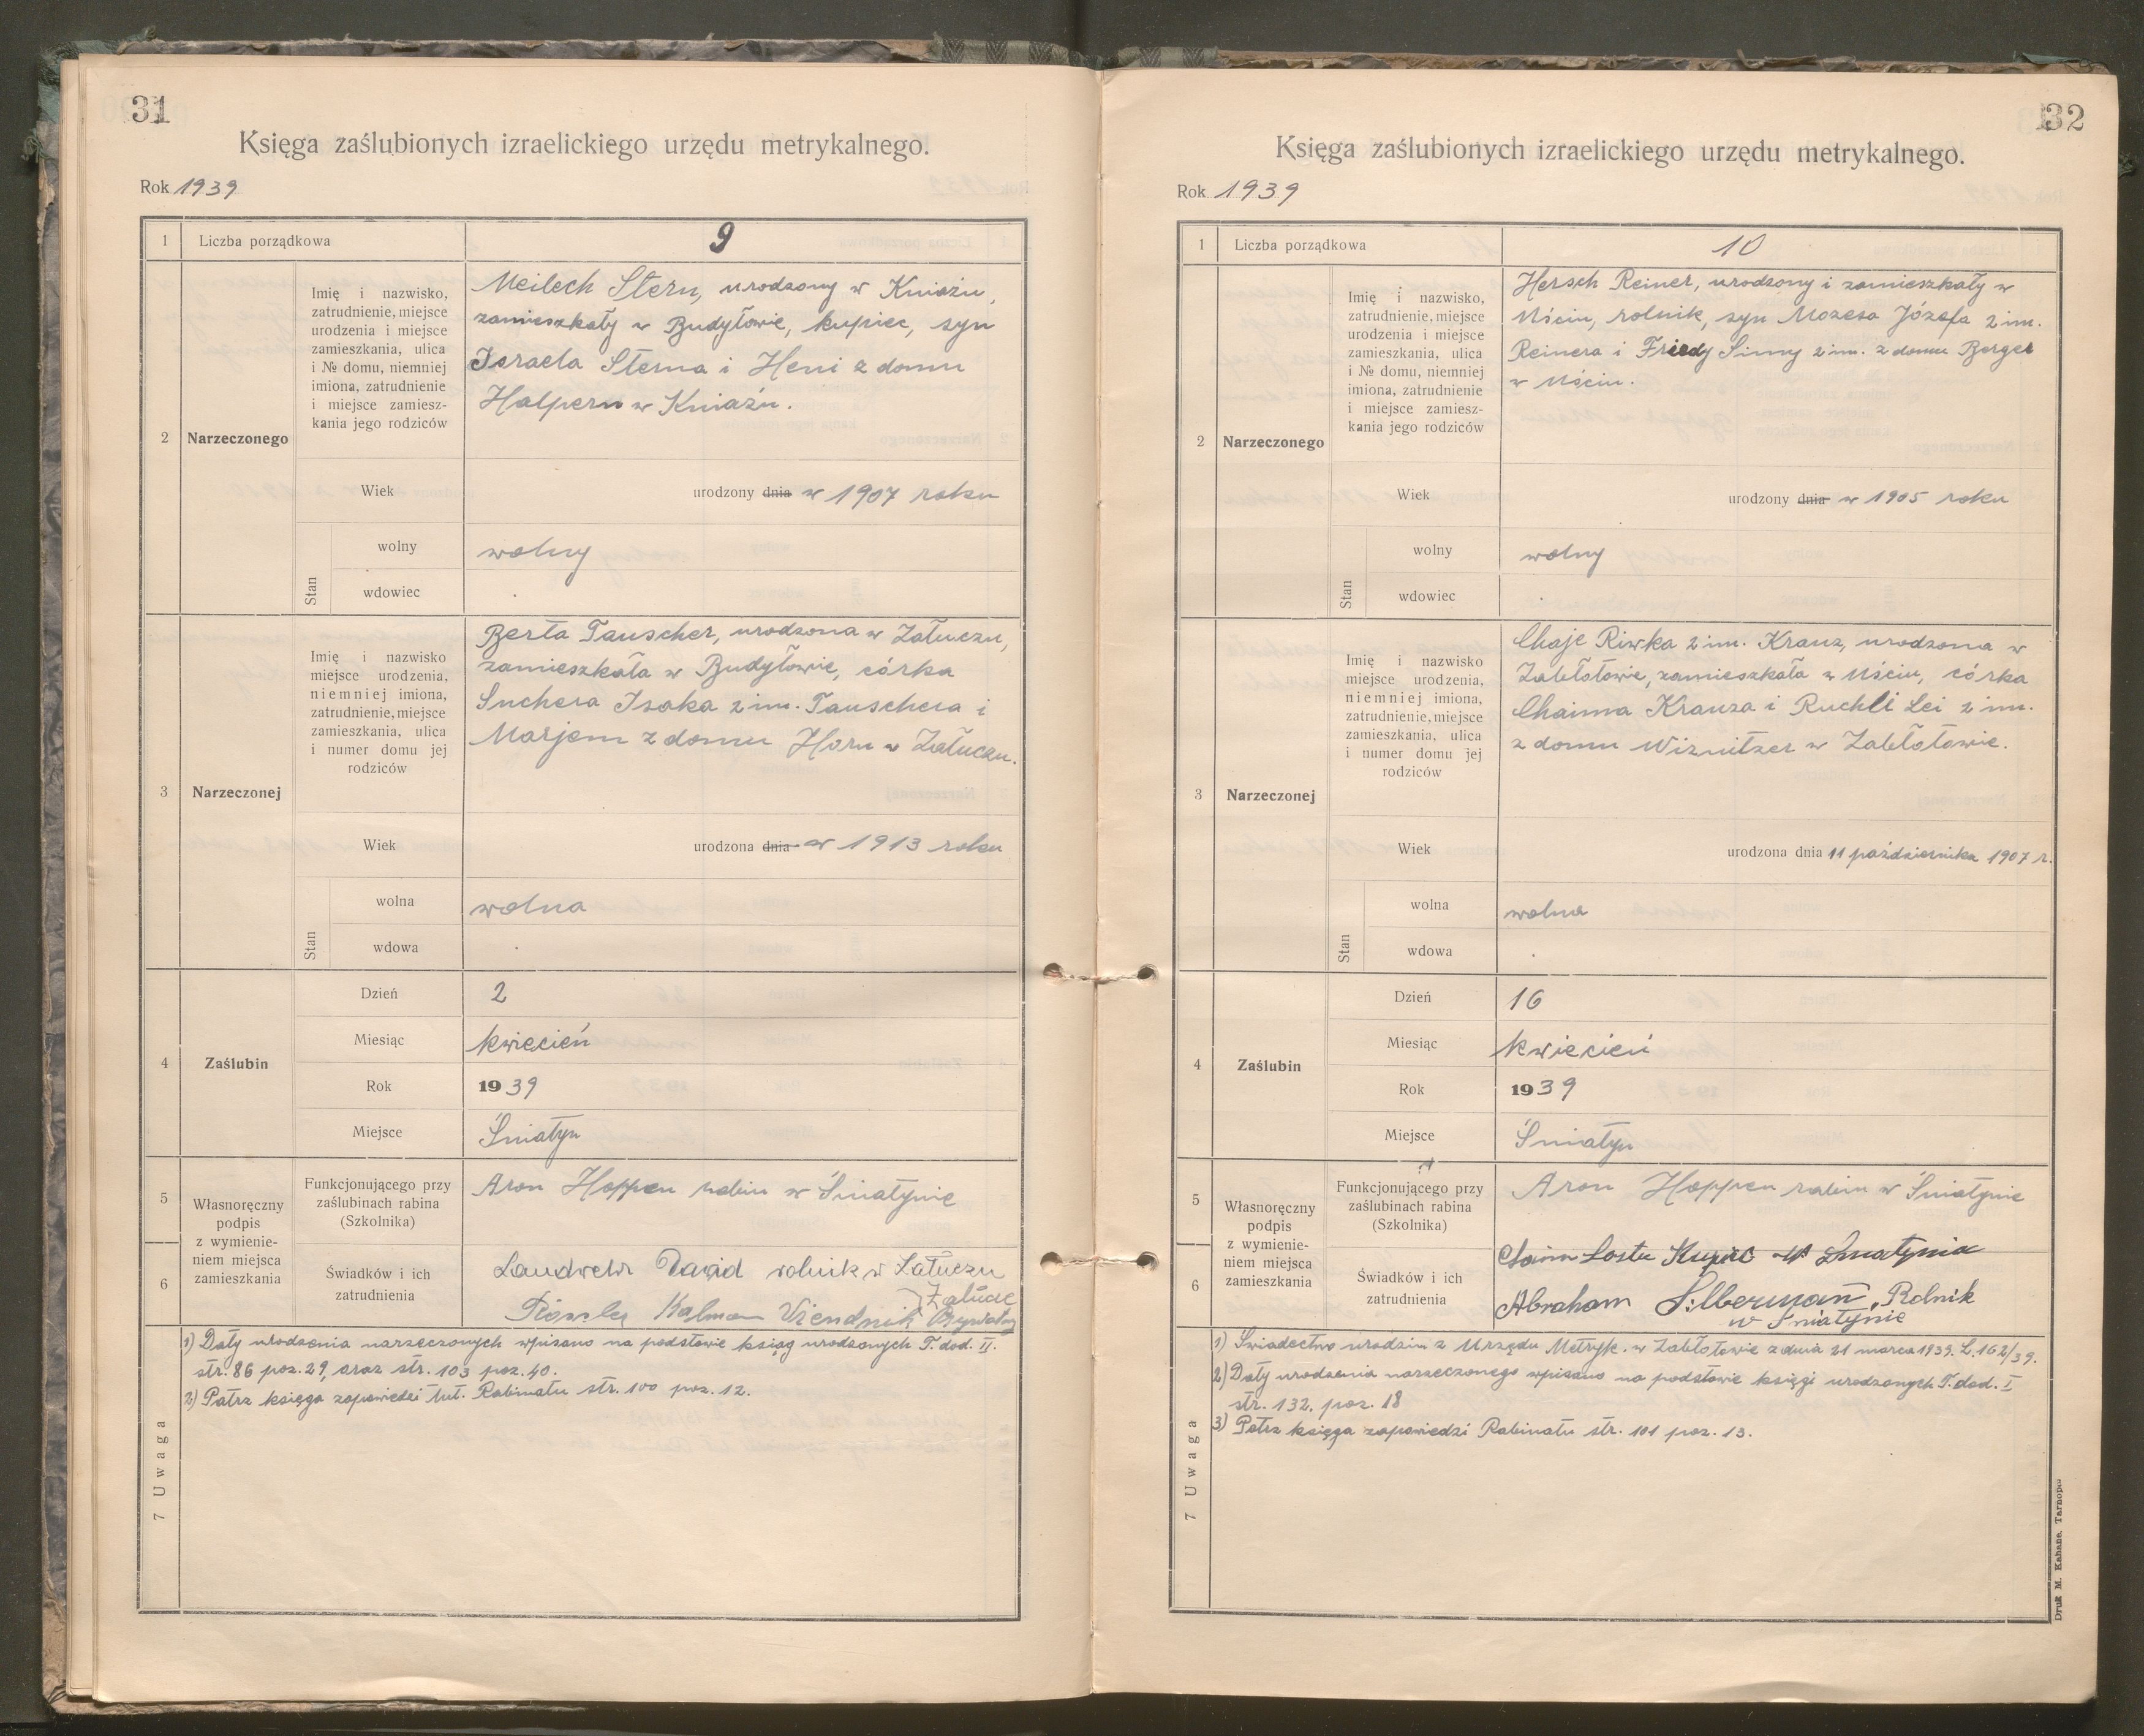 31
Księga zaślubionych izraelickiego urzędu metrykalnego.
Rok 1939
1 Liczba porządkowa 9
2 Narzeczonego
Imię i nazwisko,
zatrudnienie, miejsce
urodzenia i miejsce
zamieszkania, ulica
i № domu, niemniej
imiona, zatrudnienie
i miejsce zamiesz-
kania jego rodziców
Meilech Stern, urodzony w Kniażu,
zamieszkały w Budyłowie, kupiec, syn
Israela Sterna i Heni z domu
Halpern w Kniażu.
Wiek urodzony dnia w 1907 roku
Stan
wolny wolny
wdowiec
3 Narzeczonej
Imię i nazwisko
miejsce urodzenia,
niemniej imiona,
zatrudnienie, miejsce
zamieszkania, ulica
i numer domu jej
rodziców
Berta Tauscher, urodzona w Załuczu,
zamieszkała w Budyłowie, córka
Suchera Isaka 2 im. Tauschera i
Marjem z domu Horn w Załuczu.
Wiek urodzona dnia w 1913 roku
Stan
wolna wolna
wdowa
4 Zaślubin
Dzień 2
Miesiąc kwiecień
Rok 1939
Miejsce Śniatyn
5
6
Własnoręczny
podpis
z wymienie-
niem miejsca
zamieszkania
Funkcjonującego przy
zaślubinach rabina
(Szkolnika)
Aron Hoppen rabin w Śniatynie
Świadków i ich
zatrudnienia
Dawid rolnik w Załuczu
Załucze
Kalman
7 Uwaga
1) Daty urodzenia narzeczonych wpisano na podstawie ksiąg urodzonych T. dod. II.
str. 86 poz. 29, oraz str. 103 poz. 40.
2) Patrz księga zapowiedzi tut. Rabinatu str. 100 poz. 12.
32
Księga zaślubionych izraelickiego urzędu metrykalnego.
Rok 1939
1 Liczba porządkowa 10
2 Narzeczonego
Imię i nazwisko,
zatrudnienie, miejsce
urodzenia i miejsce
zamieszkania, ulica
i № domu, niemniej
imiona, zatrudnienie
i miejsce zamiesz-
kania jego rodziców
Hersch Reiner, urodzony i zamieszkały w
Uściu, rolnik, syn Mozesa Józefa 2 im.
Reinera i Friedy Simy 2 im. z domu Berger
w Uściu.
Wiek urodzony dnia w 1905 roku
Stan
wolny wolny
wdowiec
3 Narzeczonej
Imię i nazwisko
miejsce urodzenia,
niemniej imiona,
zatrudnienie, miejsce
zamieszkania, ulica
i numer domu jej
rodziców
Chaje Riwka 2 im. Kranz, urodzona w
Zabłotowie, zamieszkała w Uściu, córka
Chaima Kranza i Ruchli Lei 2 im.
z domu Wiznitzer w Zabłotowie.
Wiek urodzona dnia 11 października 1907 r.
Stan
wolna wolna
wdowa
4 Zaślubin
Dzień 16
Miesiąc kwiecień
Rok 1939
Miejsce Śniatyn
5
6
Własnoręczny
podpis
z wymienie-
niem miejsca
zamieszkania
Funkcjonującego przy
zaślubinach rabina
(Szkolnika)
Aron Hoppen rabin w Śniatynie
Świadków i ich
zatrudnienia
Kupiec w Sniatynia
Abraham Silberman, Rolnik
w Śniatynie
7 Uwaga
1) Świadectwo urodzin z Urzędu Metryk. w Zabłotowie z dnia 21 marca 1939. L. 162/39.
2) Daty urodzenia narzeczonego wpisano na podstawie księgi urodzonych T. dod. I
str. 132. poz. 18
3) Patrz księga zapowiedzi Rabinatu str. 101 poz. 13.
Druk M. Kahane, Tarnopol